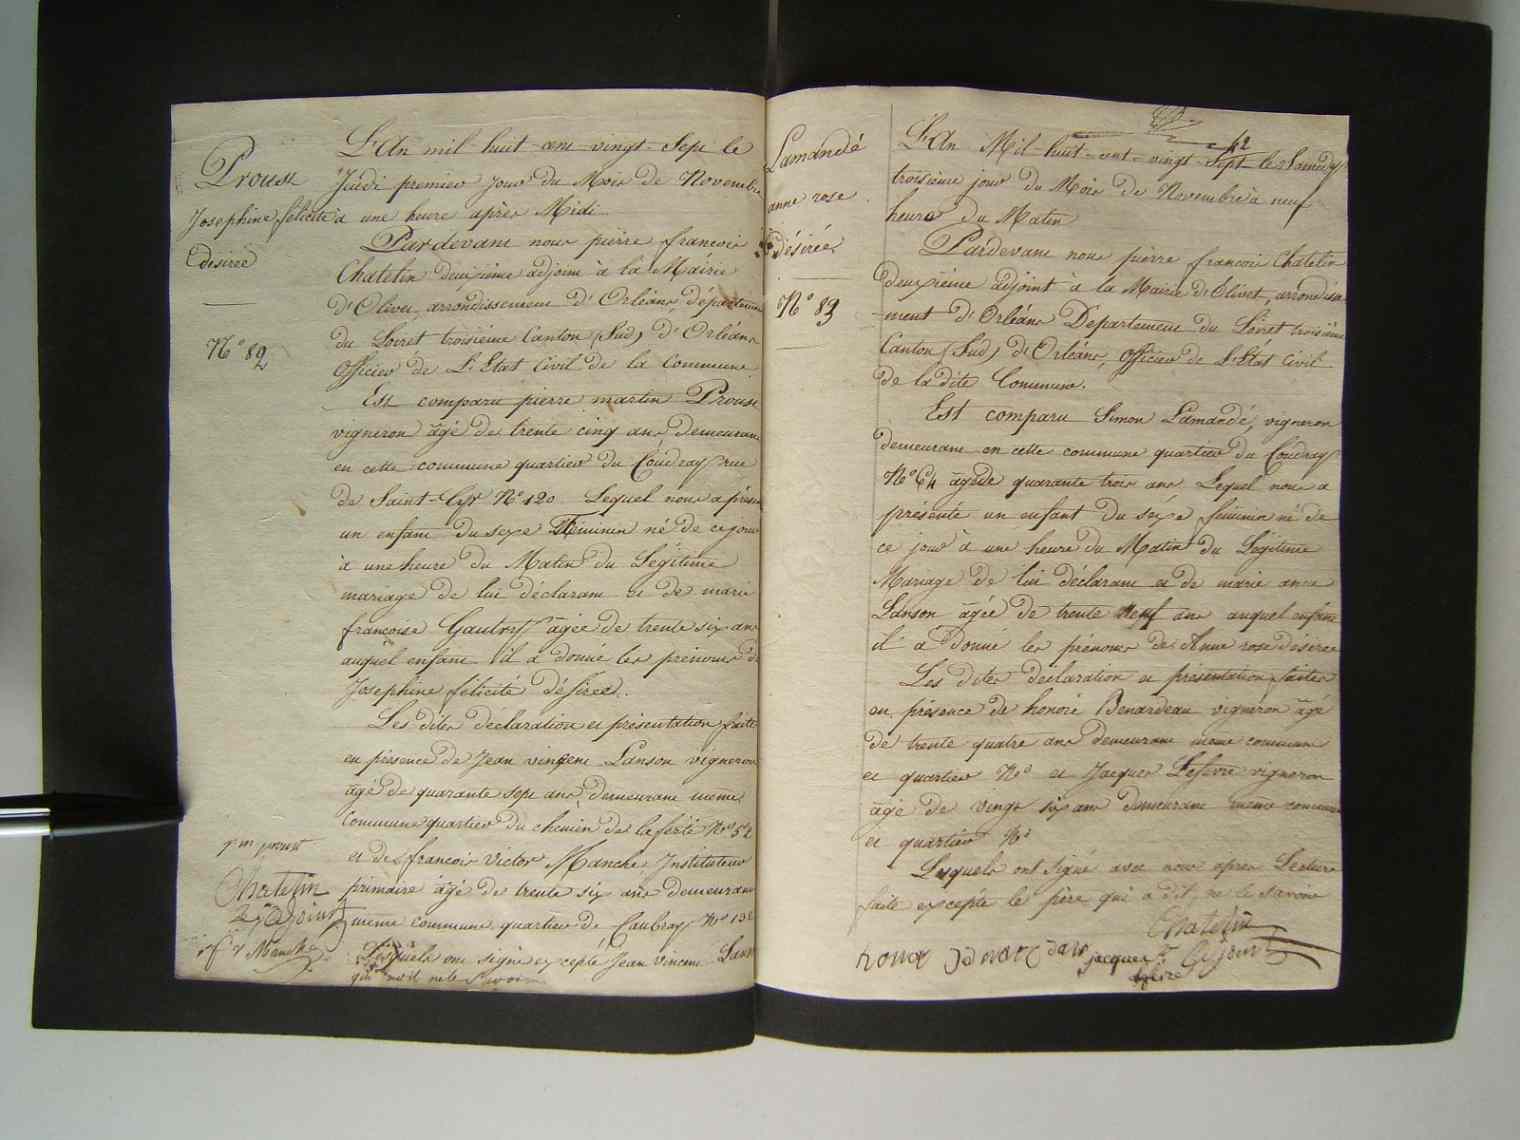 Proust
Josephine félicité
désirée
N° 82
L'An mil huit cent vingt-Sept le
Jeudi premier jour du Mois de Novembre
à une heure après Midi
Pardevant nous pierre francois
Chatelin deuxième adjoint à la Mairie
D'Olivet, arrondissement d'Orléans, département
du Loiret troisième Canton (Sud) d'Orléans
Officier de L'Etat Civil de la Commune
Est comparu pierre martin Proust
vigneron âgé de trente cinq ans, demeurant
en cette commune quartier du Coudray rue
de Saint-Cyr N° 120. Lequel nous a présenté
un enfant du sexe Féminin né de ce jour
à une heure du Matin du Légitime
mariage de lui déclarant et de marie
françoise Gautry âgée de trente six ans
auquel enfant il a donné les prénoms de
Josephine félicité désirée.
Les dites déclaration et présentation faites
en présence de Jean vincent Lanson vigneron
âgé de quarante sept ans, demeurant même
Commune quartier du chemin de la ferté N° 52
et de francois Victor Manche, Instituteur
primaire âgé de trente six ans demeurant
même commune quartier de Caubray N° 138
Lesquels ont signé excepté Jean vincent Lanson
qui a dit ne le Savoir
p m proust
Chatelin
2e adjoint
f v Manche
Lamandé
anne rose
désirée
N° 83
42
L'An Mil-huit-cent-vingt-Sept le Samedy
troisième jour du Mois de Novembre à neuf
heures du Matin
Pardevant nous pierre francois Chatelin
deuxième adjoint à la Mairie d'Olivet, arrondisse-
-ment d'Orléans Departement du Loiret troisième
Canton (Sud) d'Orléans, Officier de L'Etat Civil
de la dite Commune.
Est comparu Simon Lamandé, vigneron
demeurant en cette commune quartier du Coudray
N° 64 âgé de quarante trois ans. Lequel nous a
présenté un enfant du sexe féminin né de
ce jour à une heure du Matin du Légitime
Mariage de lui déclarant et de marie anne
Lanson âgée de trente neuf ans auquel enfant
il a Donné les prénoms de Anne rose désirée
Les dites déclaration et présentation faites
en présence de honoré Benardeau vigneron âgé
de trente quatre ans demeurant même commune
et quartier N° et Jacques Lefevre vigneron
âgé de vingt six ans demeurant même commune
et quartier N°
Lesquels ont signé avec nous après Lecture
faite excepté le père qui a dit ne le savoir
Chatelin
2e adjoint
jacques